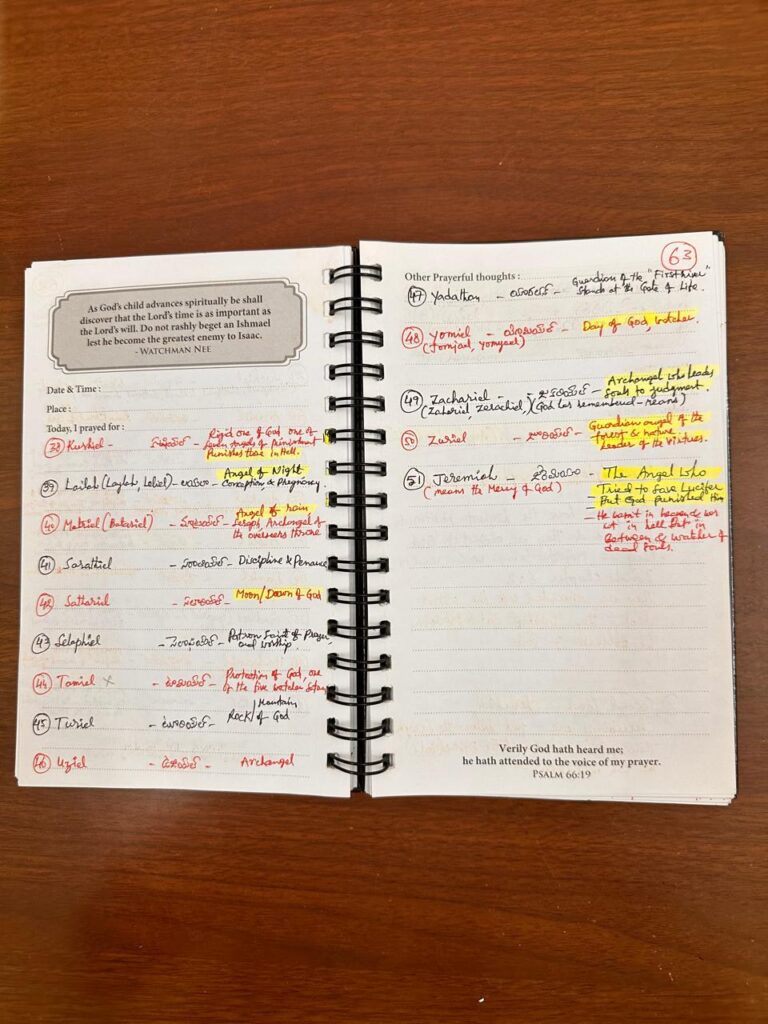 As God's child advances spiritually be shall
discover that the Lord's time is as important as
the Lord's will. Do not rashly beget an Ishmael
lest he become the greatest enemy to Isaac.
- WATCHMAN NEE
Date & Time :
Place :
Today, I prayed for :
38 Kushiel - Rigid one of God one of
Seven Angels of punishment
Punishes those in Hell.
Angel of Night
39 Lailah (Laylah, Leliel) - లైలా - Conception & Pregnancy.
Angel of rain
40 Matriel (Batariel) - Seraph, Archangel of
the overseers throne
41 Sarathiel - సారాతియేల్ - Discipline & Penance
42 Sattariel - Moon/Dawn of God
43 Selaphiel - Patron Saint of Prayer,
and worship.
44 Tamiel x - తామియేల్ - Protection of God, one
of the five watcher
Mountain
45 Turiel - టూరియేల్ - Rock / of God
46 Uziel - ఉజియేల్ - Archangel
63
Other Prayerful thoughts :
Guardian of the "First river"
47 Yadathan - Stands at the Gate of Life.
48 Yomiel - యోమియేల్ - Day of God, watcher.
(Jomjael, Yomyael)
49 Zachariel - జకరియేల్ - Archangel who leads
Souls to judgment.
(Zaherial, Zerachiel,) (God has remembered - means)
50 Zuriel - జూరియేల్ - Guardian angel of the
forest & nature
Leader of the Virtues.
51 Jeremiah - The Angel who
(means the Mercy of God) Tried to Save Lucifer
But God punished Him
- He wasn't in heaven & was
not in hell but in
between & watcher of
dead souls.
Verily God hath heard me;
he hath attended to the voice of my prayer.
PSALM 66:19